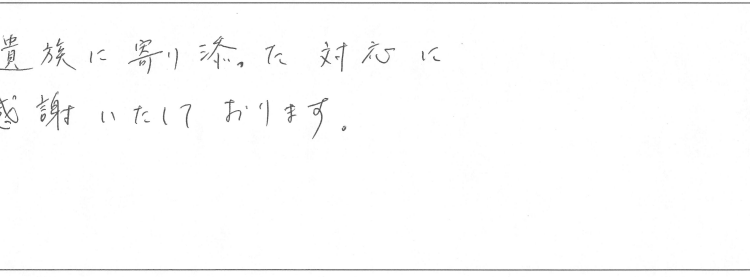 遺族に寄り添った対応に
感謝いたしております。